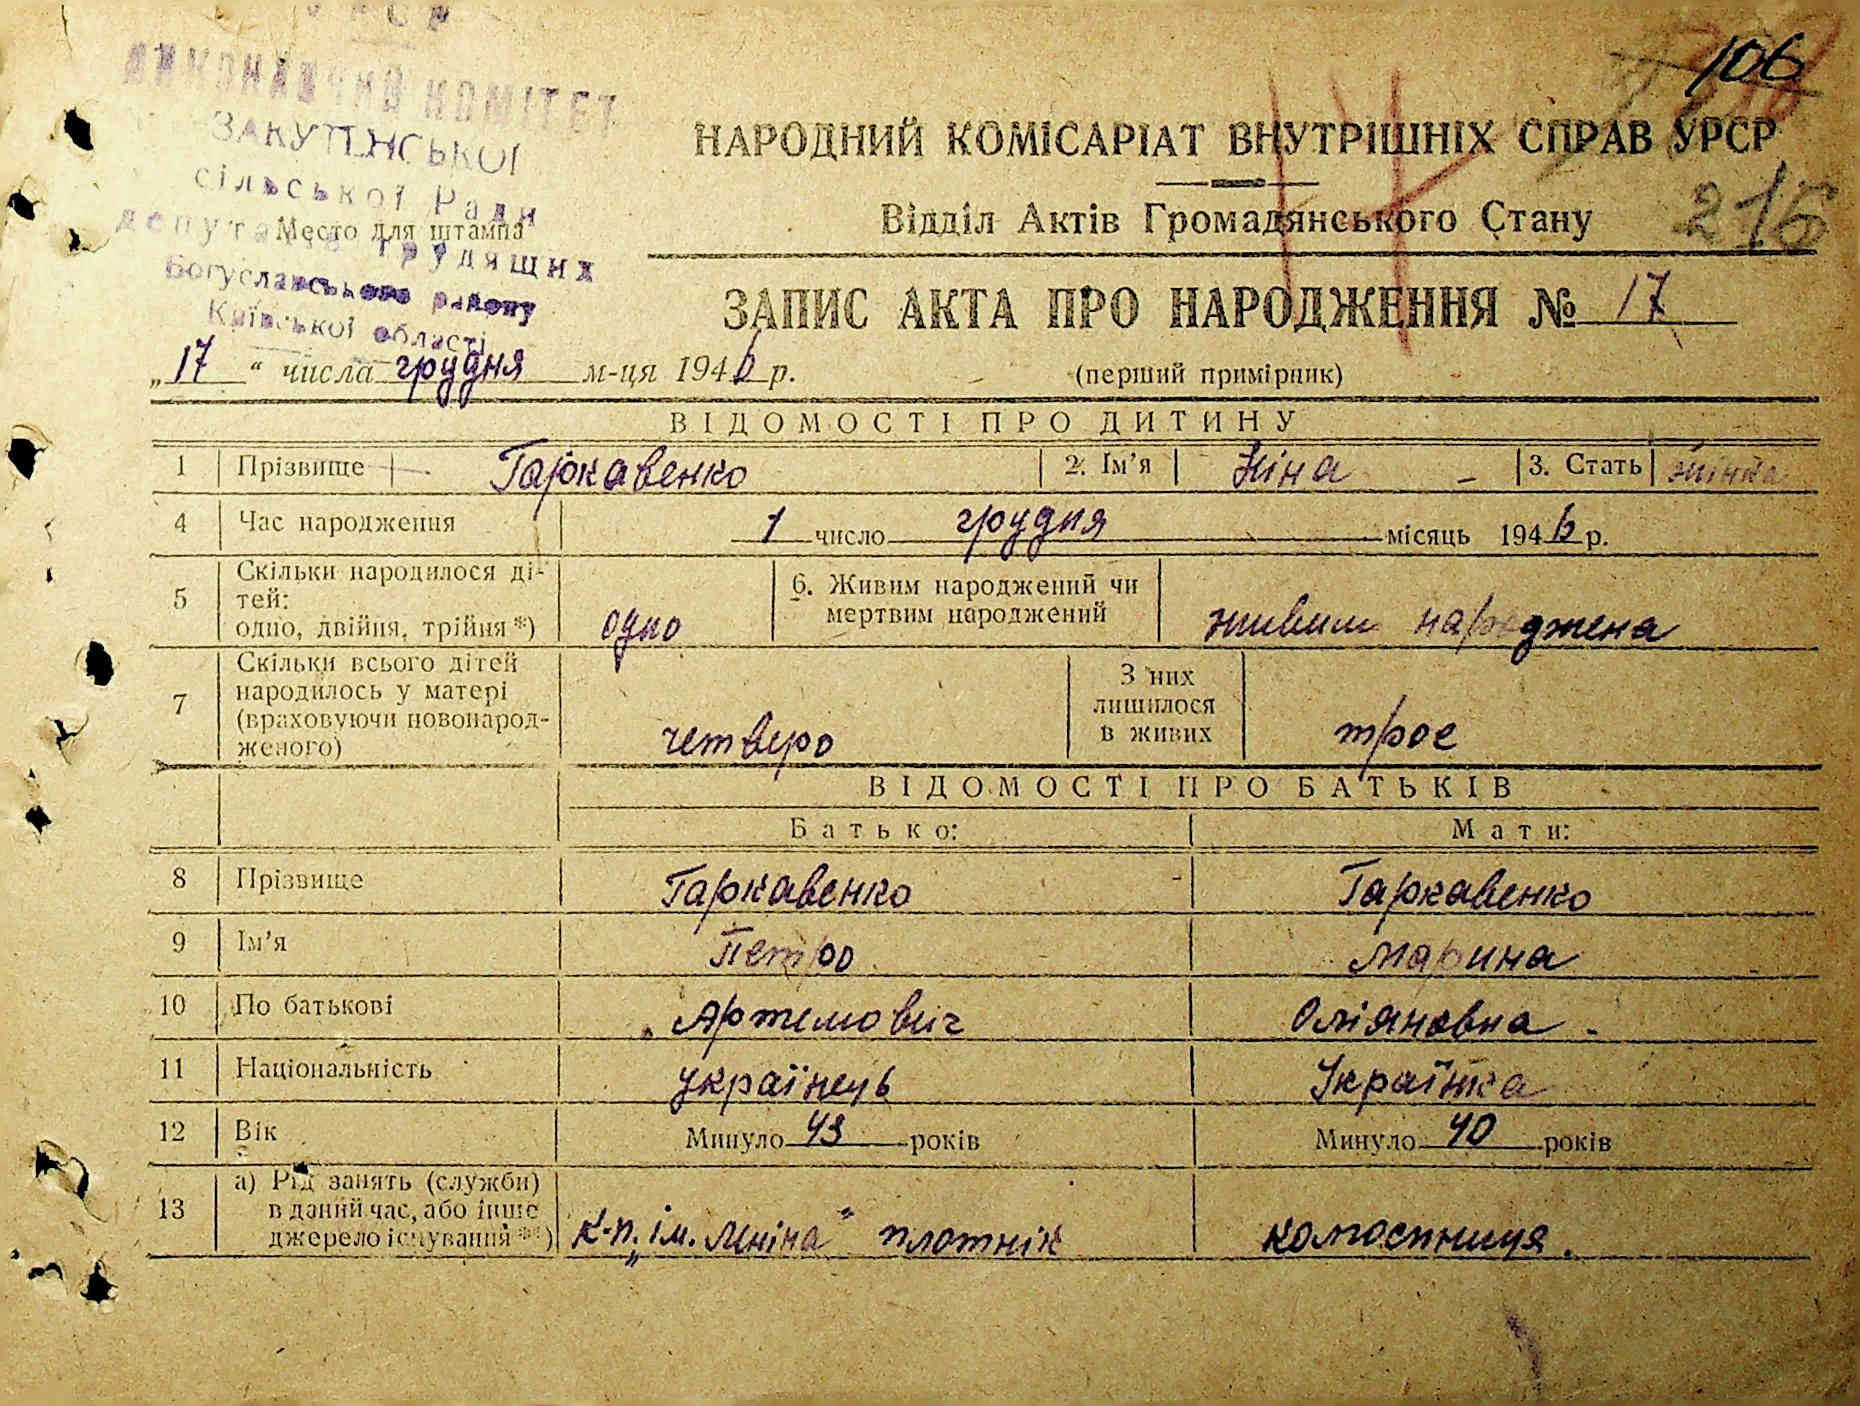 УРСР
ВИКОНАВЧИЙ КОМІТЕТ
ЗАКУТИНСЬКОЇ
сільської Ради
депутатів трудящих
Место для штампа
Богуславського району
Київської області
106
НАРОДНИЙ КОМІСАРІАТ ВНУТРІШНІХ СПРАВ УРСР
Відділ Актів Громадянського Стану
215
ЗАПИС АКТА ПРО НАРОДЖЕННЯ № 17
„17“ числа грудня м-ця 1946 р.
(перший примірник)
ВІДОМОСТІ ПРО ДИТИНУ
1 Прізвище Гаркавенко 2. Ім’я Ніна 3. Стать жінка
4 Час народження 1 число грудня місяць 1946 р.
5 Скільки народилося ді-
тей:
одно, двійня, трійня*) одно
6. Живим народжений чи
мертвим народжений живим народжена
7 Скільки всього дітей
народилось у матері
(враховуючи новонарод-
женого) четверо
З них
лишилося
в живих троє
ВІДОМОСТІ ПРО БАТЬКІВ
Батько: Мати:
8 Прізвище Гаркавенко Гаркавенко
9 Ім’я Петро Марина
10 По батькові Артемович Оліяновна
11 Національність українець Українка
12 Вік Минуло 43 років Минуло 40 років
13 а) Рід занять (служби)
в даний час, або інше
джерело існування**) к-п. „ім. Леніна“ плотнік колгоспниця.